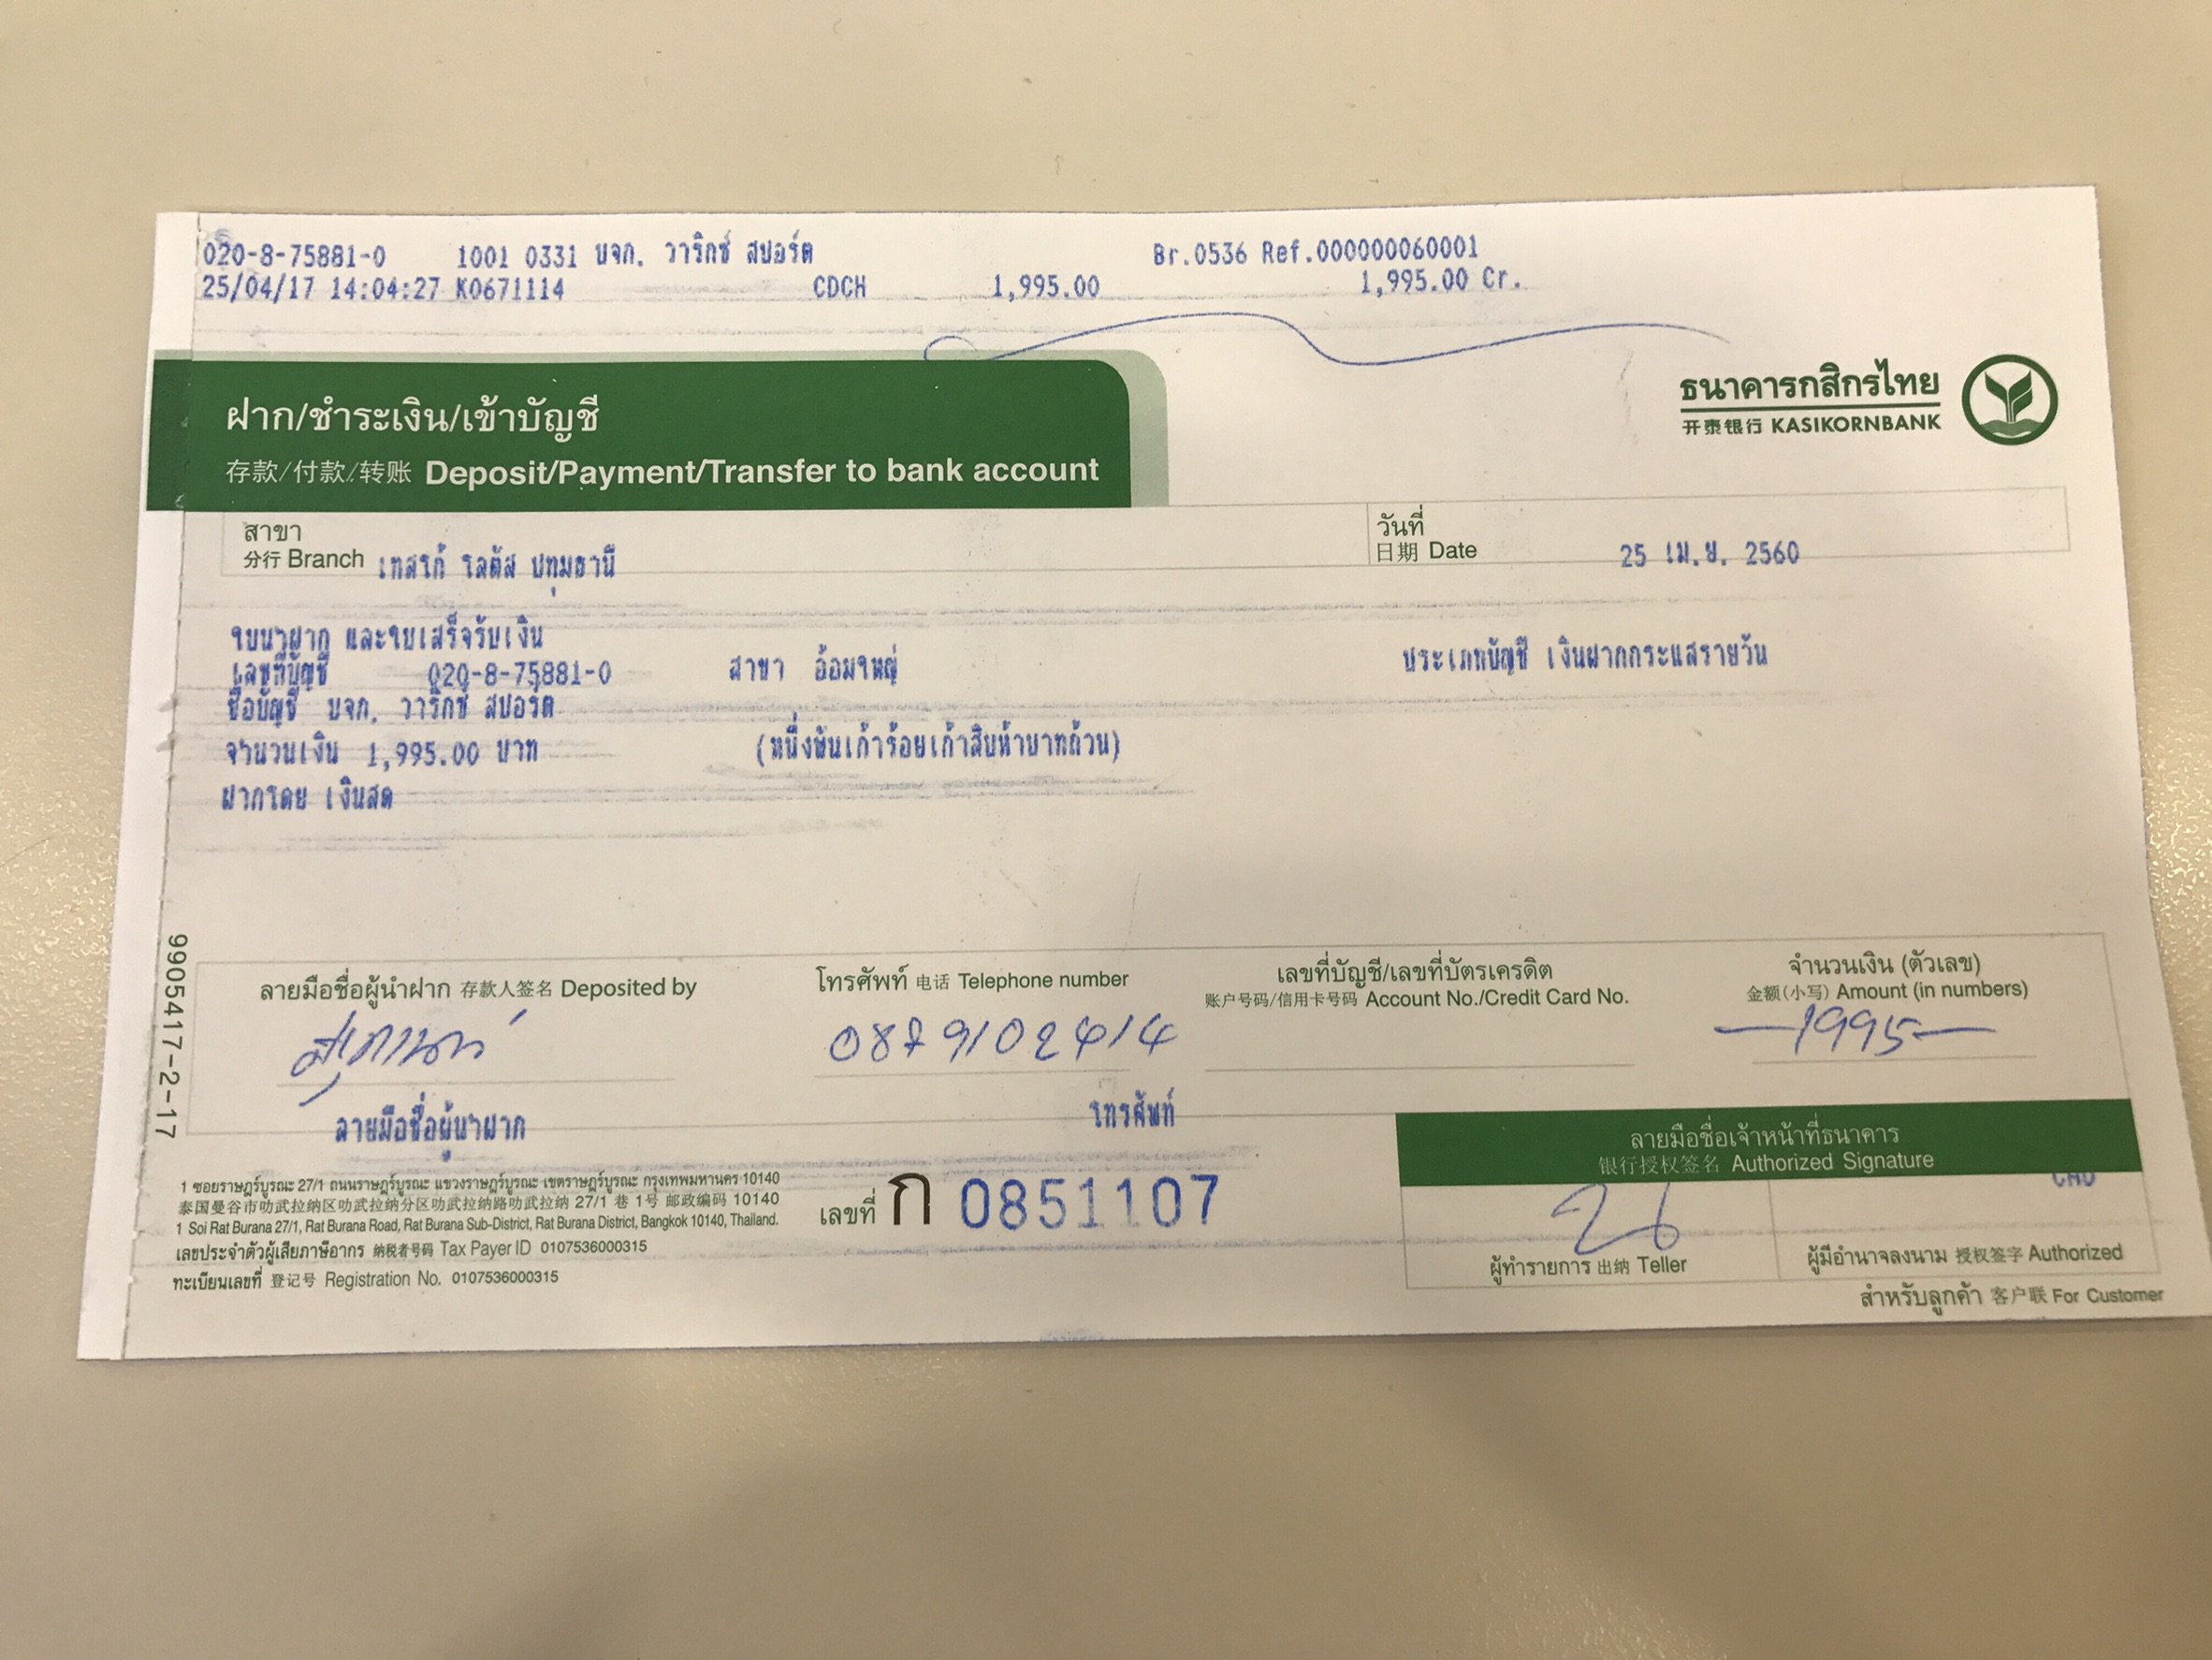 020-8-75881-0 1001 0331 บจก. วาริกซ์ สปอร์ต Br.0536 Ref.000000060001
25/04/17 14:04:27 K0671114 CDCH 1,995.00 1,995.00 Cr.
ฝาก/ชำระเงิน/เข้าบัญชี
存款/付款/转账 Deposit/Payment/Transfer to bank account
ธนาคารกสิกรไทย
开泰银行 KASIKORNBANK
สาขา
分行 Branch เทสโก้ โลตัส ปทุมธานี
วันที่
日期 Date 25 เม.ย. 2560
ใบนำฝาก และใบเสร็จรับเงิน
เลขที่บัญชี 020-8-75881-0 สาขา อ้อมใหญ่ ประเภทบัญชี เงินฝากกระแสรายวัน
ชื่อบัญชี บจก. วาริกซ์ สปอร์ต
จำนวนเงิน 1,995.00 บาท (หนึ่งพันเก้าร้อยเก้าสิบห้าบาทถ้วน)
ฝากโดย เงินสด
9905417-2-17
ลายมือชื่อผู้นำฝาก 存款人签名 Deposited by
โทรศัพท์ 电话 Telephone number
0879102414
เลขที่บัญชี/เลขที่บัตรเครดิต
账户号码/信用卡号码 Account No./Credit Card No.
จำนวนเงิน (ตัวเลข)
金额(小写) Amount (in numbers)
—1995—
ลายมือชื่อผู้นำฝาก โทรศัพท์
1 ซอยราษฎร์บูรณะ 27/1 ถนนราษฎร์บูรณะ แขวงราษฎร์บูรณะ เขตราษฎร์บูรณะ กรุงเทพมหานคร 10140
泰国曼谷市叻武拉纳区叻武拉纳分区叻武拉纳路叻武拉纳 27/1 巷 1号 邮政编码 10140
1 Soi Rat Burana 27/1, Rat Burana Road, Rat Burana Sub-District, Rat Burana District, Bangkok 10140, Thailand.
เลขประจำตัวผู้เสียภาษีอากร 纳税者号码 Tax Payer ID 0107536000315
ทะเบียนเลขที่ 登记号 Registration No. 0107536000315
เลขที่ ก 0851107
ลายมือชื่อเจ้าหน้าที่ธนาคาร
银行授权签名 Authorized Signature
ผู้ทำรายการ 出纳 Teller
ผู้มีอำนาจลงนาม 授权签字 Authorized
สำหรับลูกค้า 客户联 For Customer